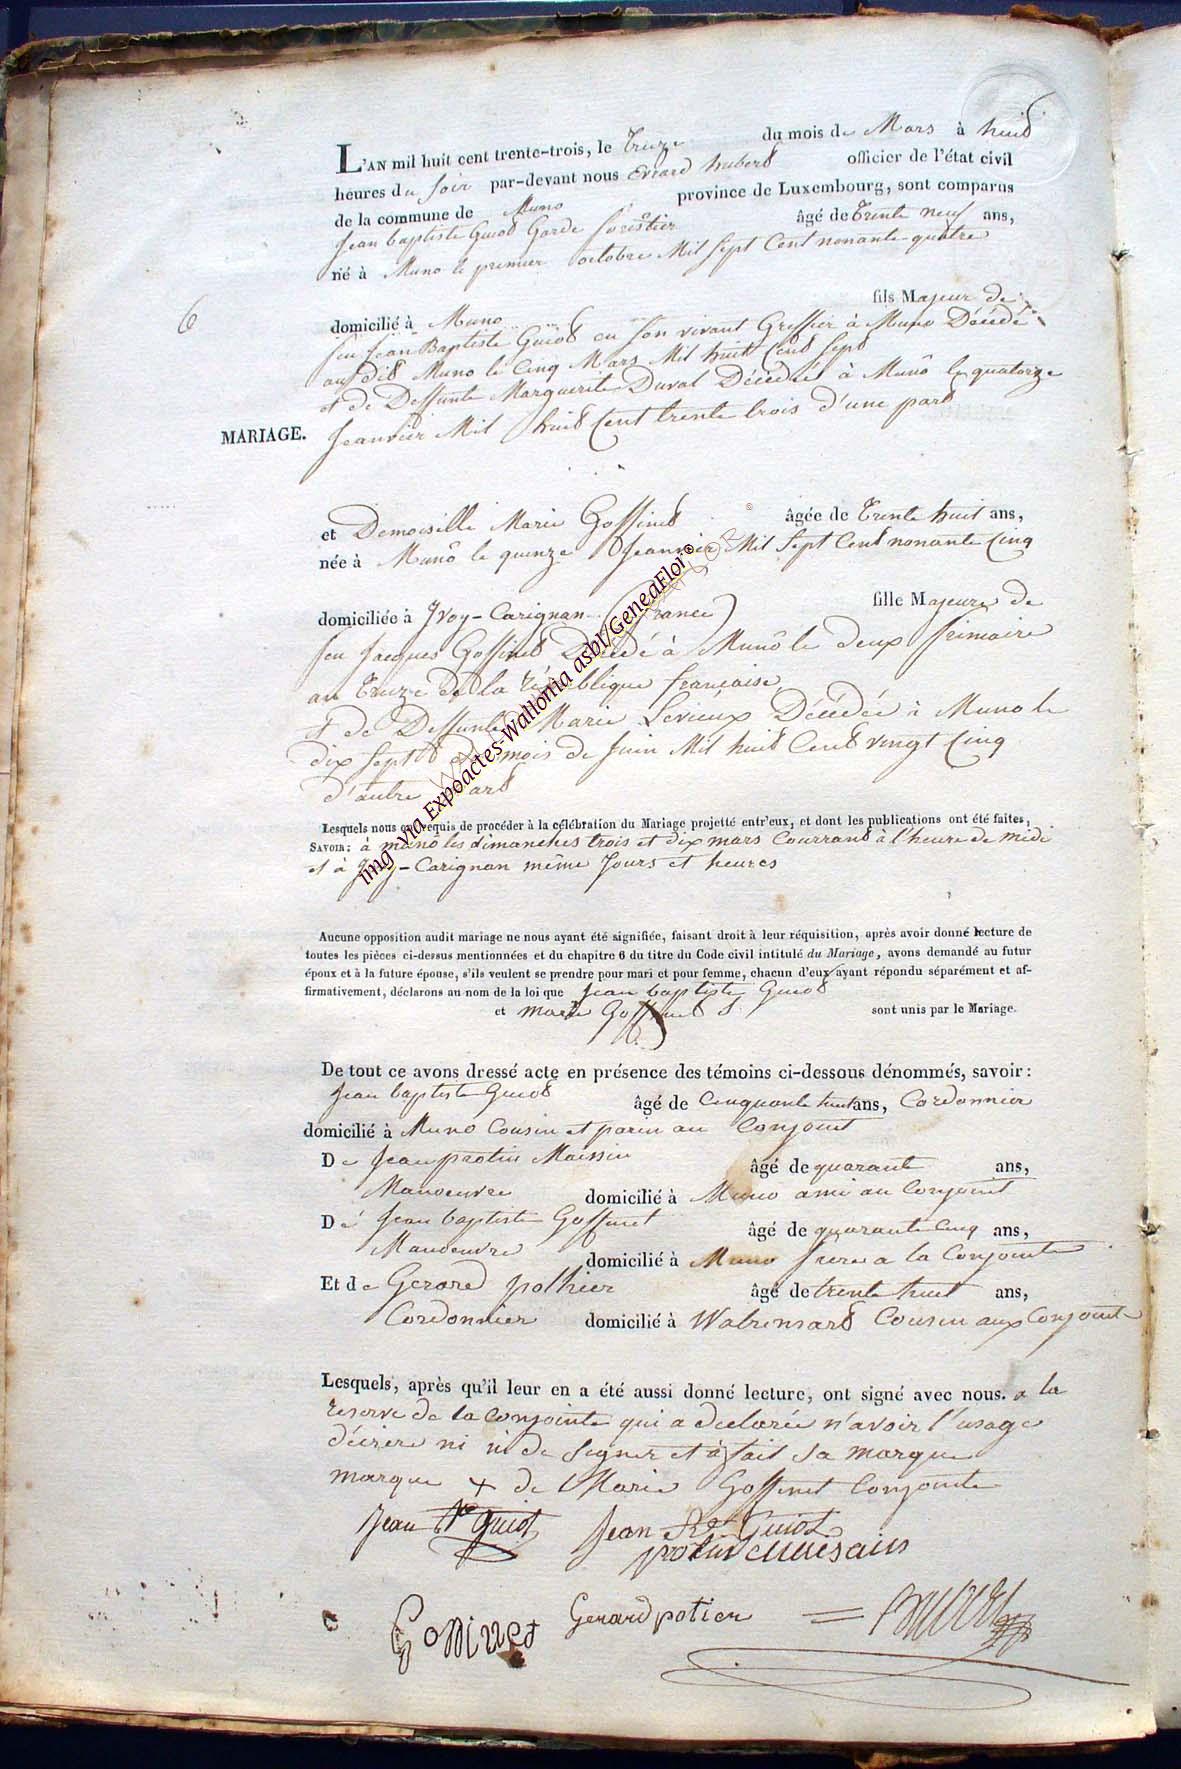 L'AN mil huit cent trente-trois, le treize du mois de Mars à huit
heures du soir par-devant nous Evrard hubert officier de l'état civil
de la commune de Muno province de Luxembourg, sont comparus
Jean baptiste Guiot Garde forestier âgé de trente neuf ans,
né à Muno le premier octobre Mil Sept Cent nonante-quatre
6
domicilié à Muno fils Majeur de
feu Jean Baptiste Guiot en son vivant Greffier à Muno Décédé
au dit Muno le Cinq Mars Mil huit Cent Sept
et de Deffunte Marguerite Duval Décédée à Muno le quatorze
MARIAGE.
Jeanvier Mil huit Cent trente trois d'une part
et Demoiselle Marie Goffinet âgée de Trente huit ans,
née à Muno le quinze Jeanvier Mil Sept Cent nonante Cinq
domiciliée à Yvoy-Carignan (France) fille Majeure de
feu Jacques Goffinet Décédé à Muno le deux frimaire
an treize de la république française
et de Deffunte Marie Lerieux Décédée à Muno le
dix Sept du mois de Juin Mil huit Cent vingt Cinq
d'autre part
Lesquels nous ont requis de procéder à la célébration du Mariage projetté entr'eux, et dont les publications ont été faites,
SAVOIR: à muno les dimanches trois et dix mars Courrant à l'heure de midi
et à Yvoy-Carignan même Jours et heures
Aucune opposition audit mariage ne nous ayant été signifiée, faisant droit à leur réquisition, après avoir donné lecture de
toutes les pièces ci-dessus mentionnées et du chapitre 6 du titre du Code civil intitulé du Mariage, avons demandé au futur
époux et à la future épouse, s'ils veulent se prendre pour mari et pour femme, chacun d'eux ayant répondu séparément et af-
firmativement, déclarons au nom de la loi que Jean baptiste Guiot
et marie Goffinet sont unis par le Mariage.
De tout ce avons dressé acte en présence des témoins ci-dessous dénommés, savoir:
Jean baptiste Guiot âgé de Cinquante huit ans, Cordonnier
domicilié à Muno Cousin et parin au Conjoint
De Jean protin Maissin âgé de quarante ans,
Manoeuvre domicilié à Muno ami au Conjoint
De Jean baptiste Goffinet âgé de quarante Cinq ans,
Manoeuvre domicilié à Muno frere a la Conjointe
Et de Gerard pothier âgé de trente huit ans,
Cordonnier domicilié à Watrinsart Cousin aux Conjoints
Lesquels, après qu'il leur en a été aussi donné lecture, ont signé avec nous. a la
reserve de la Conjointe qui a declarée n'avoir l'usage
décrire ni de Segner et à fait Sa marque
marque + de Marie Goffinet Conjointe
Jean Bte Guiot Jean Bte Guiot
Goffinet Gerard potier
img via Expoactes-Wallonia asbl/GeneaFlor©